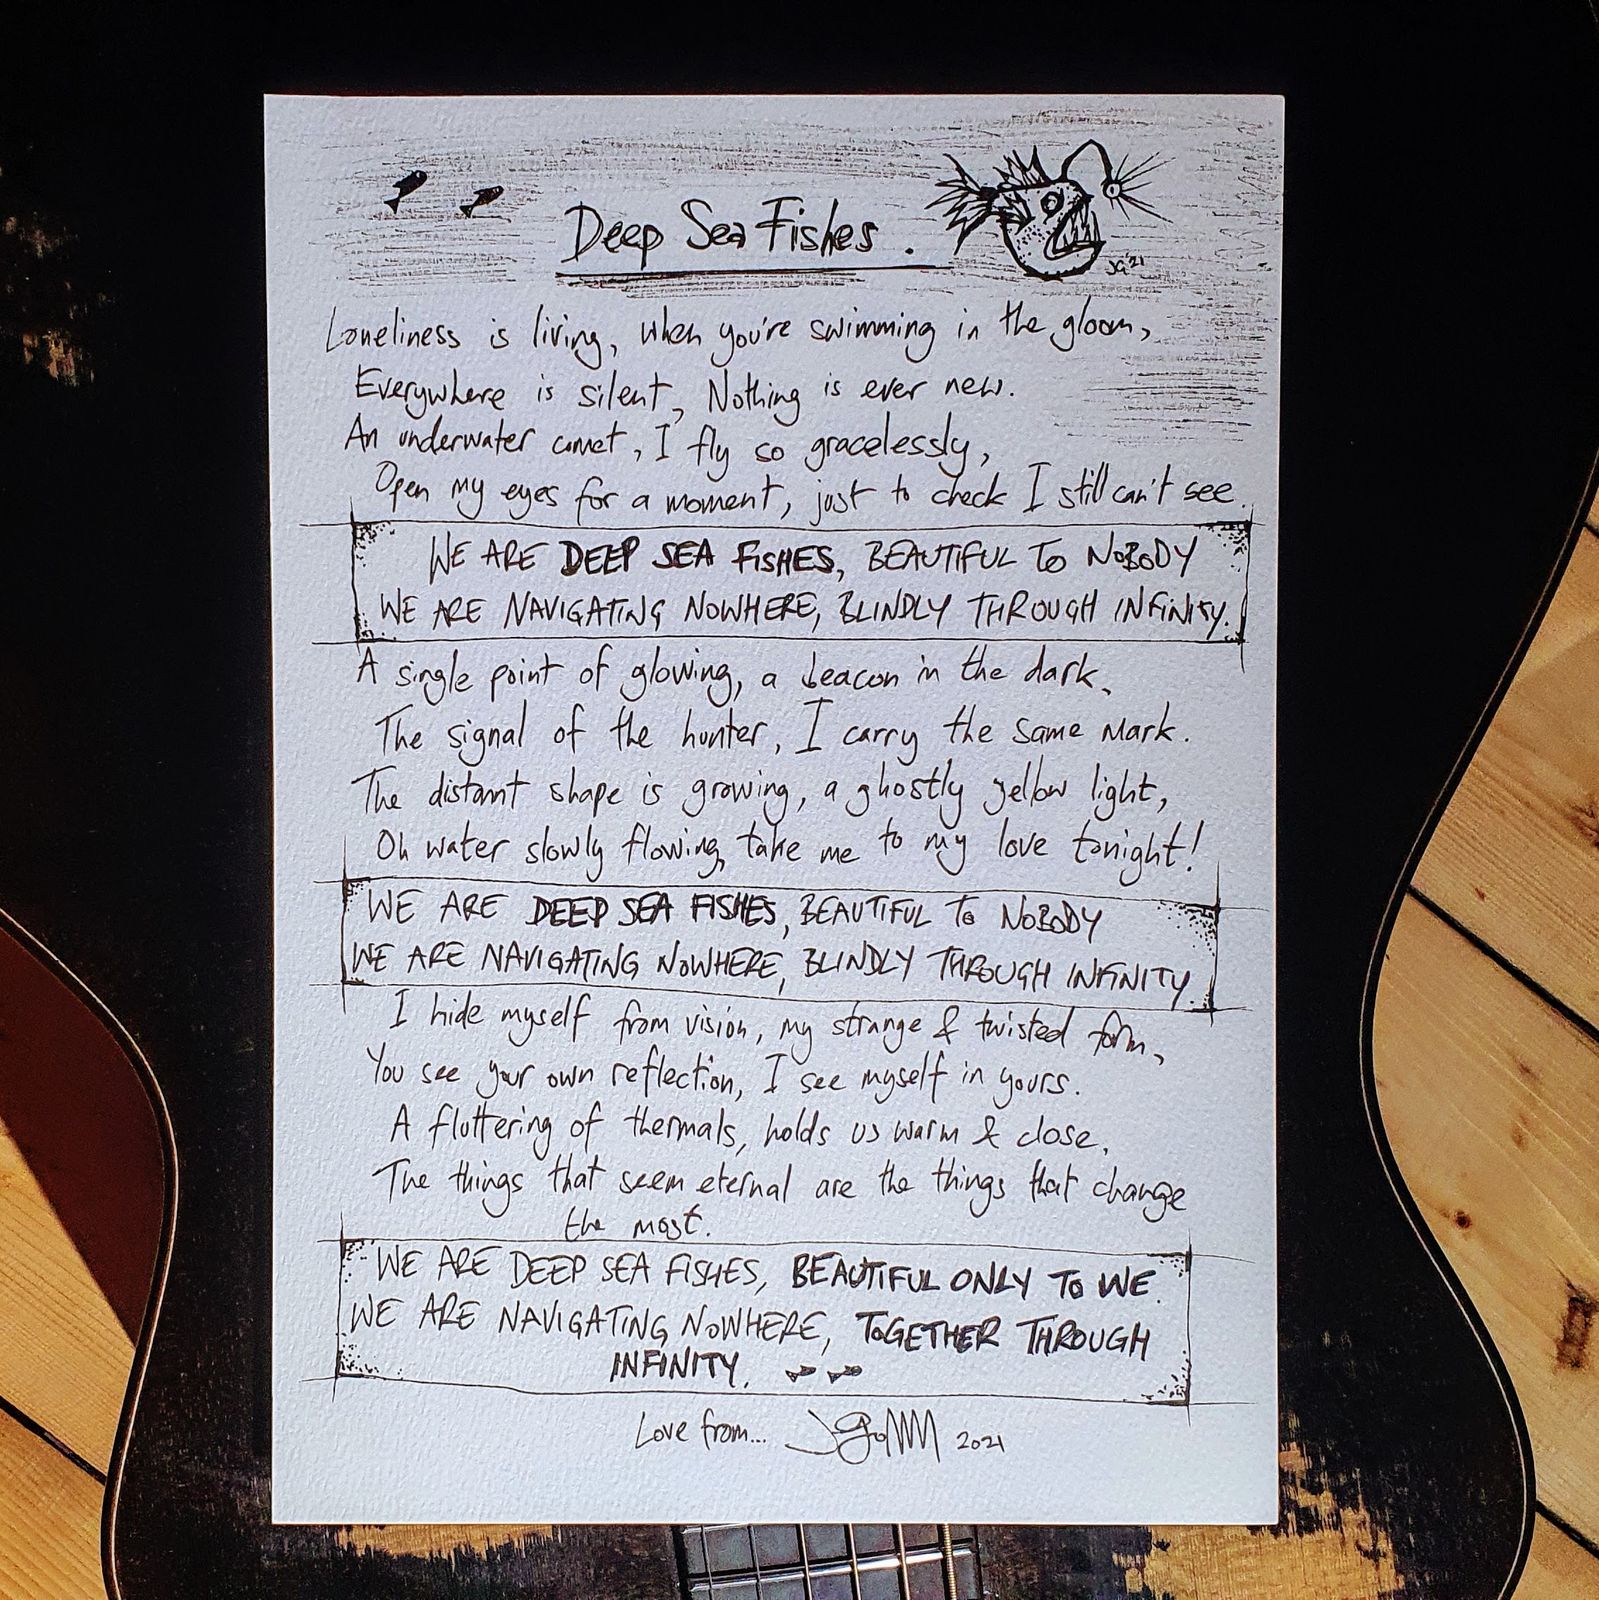 Deep Sea Fishes.
JG '21
Loneliness is living, when you're swimming in the gloom,
Everywhere is silent, Nothing is ever new.
An underwater comet, I fly so gracelessly,
Open my eyes for a moment, just to check I still can't see.
WE ARE DEEP SEA FISHES, BEAUTIFUL TO NOBODY
WE ARE NAVIGATING NOWHERE, BLINDLY THROUGH INFINITY.
A single point of glowing, a beacon in the dark,
The signal of the hunter, I carry the same mark.
The distant shape is growing, a ghostly yellow light,
Oh water slowly flowing, take me to my love tonight!
WE ARE DEEP SEA FISHES, BEAUTIFUL TO NOBODY
WE ARE NAVIGATING NOWHERE, BLINDLY THROUGH INFINITY.
I hide myself from vision, my strange & twisted form,
You see your own reflection, I see myself in yours.
A fluttering of thermals, holds us warm & close,
The things that seem eternal are the things that change
the most.
WE ARE DEEP SEA FISHES, BEAUTIFUL ONLY TO WE.
WE ARE NAVIGATING NOWHERE, TOGETHER THROUGH
INFINITY.
Love from... 2021